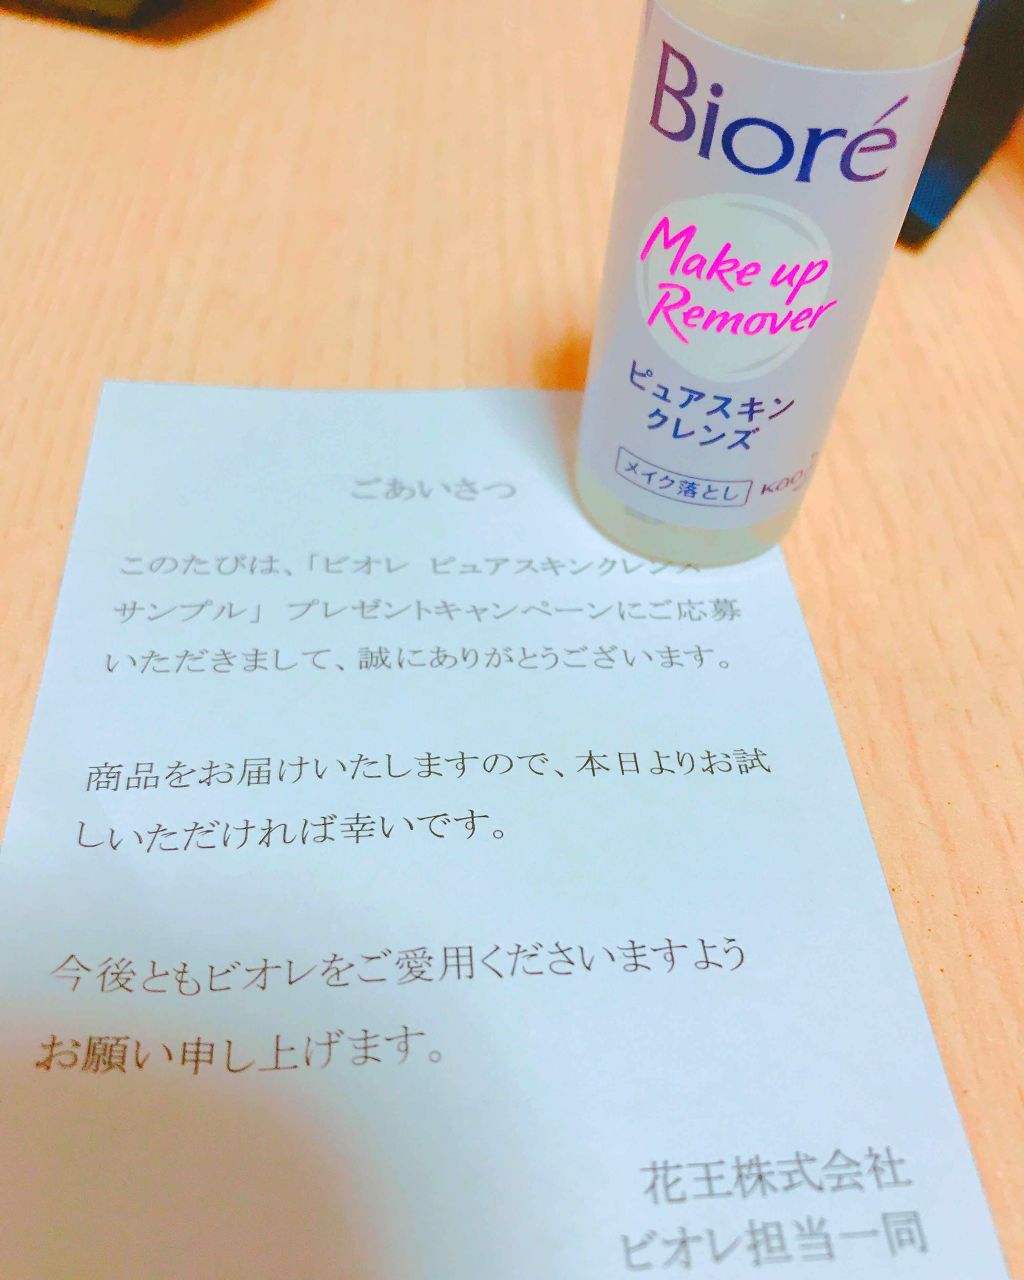 Bioré
Make up
Remover
ピュアスキン
クレンズ
メイク落とし
ごあいさつ
このたびは、「ビオレ ピュアスキンクレンズ
サンプル」 プレゼントキャンペーンにご応募
いただきまして、誠にありがとうございます。
商品をお届けいたしますので、本日よりお試
しいただければ幸いです。
今後ともビオレをご愛用くださいますよう
お願い申し上げます。
花王株式会社
ビオレ担当一同